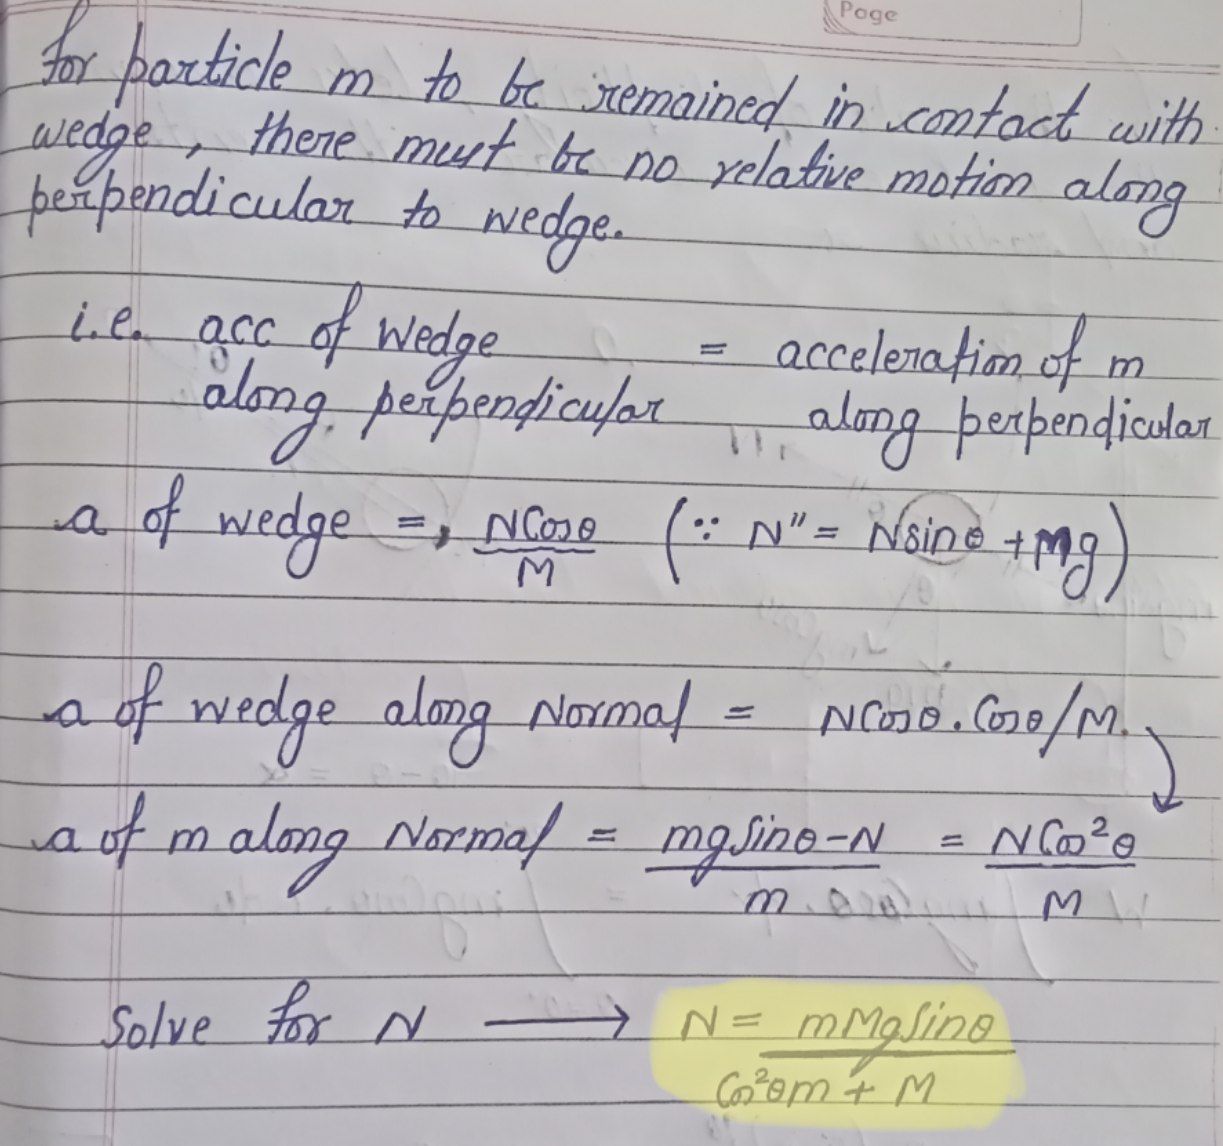 Page
for particle m to be remained in contact with
wedge, there must be no relative motion along
perpendicular to wedge.
i.e. acc of wedge = acceleration of m
along perpendicular along perpendicular
a of wedge =, NCosθ/M (∵ N" = Nsinθ + Mg)
a of wedge along Normal = NCosθ.Cosθ/M.
a of m along Normal = mgsinθ-N/m = NCos²θ/M
Solve for N → N = mMgsinθ/Cos²θm + M